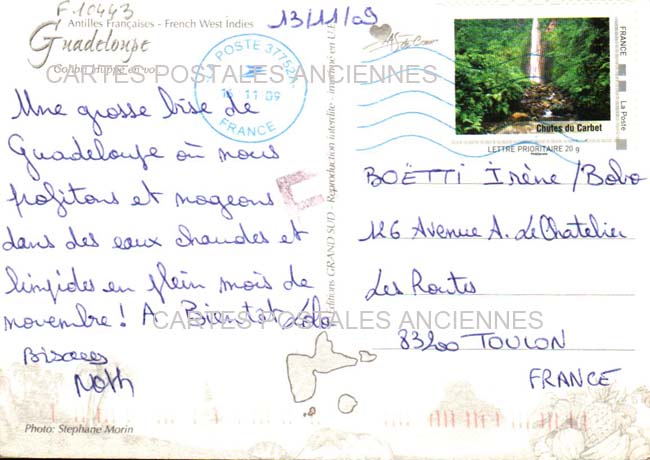 F.10443
Antilles Françaises - French West Indies
Guadeloupe
Colibri Huppé en vol
13/11/09
LA POSTE 37752A
16 11 09
FRANCE
CARTES POSTALES ANCIENNES
Une grosse bise de
Guadeloupe où nous
profitons et nageons
dans des eaux chaudes et
limpides en plein mois de
novembre! A Bientôt Lolo
Bisous
Nath
Photo: Stephane Morin
Editions GRAND SUD - Reproduction interdite - imprimé en U.E.
FRANCE
La Poste
Chutes du Carbet
LETTRE PRIORITAIRE 20 g
BOËTTI Irène/Bobo
126 Avenue A. Le Chatelier
Les Routes
83200 TOULON
FRANCE
CARTES POSTALES ANCIENNES